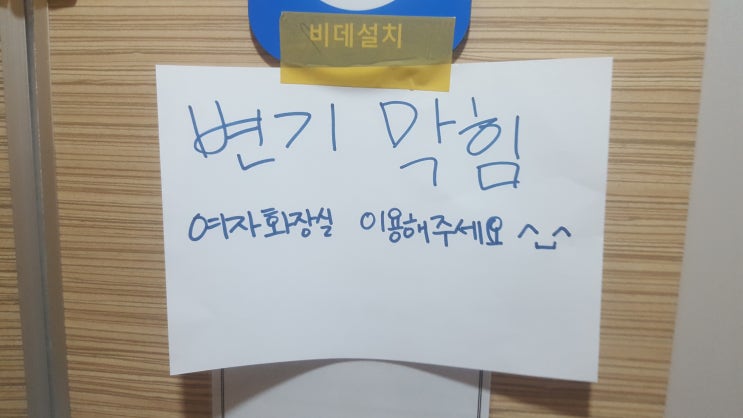 비데설치
변기 막힘
여자화장실 이용해주세요 ^_^